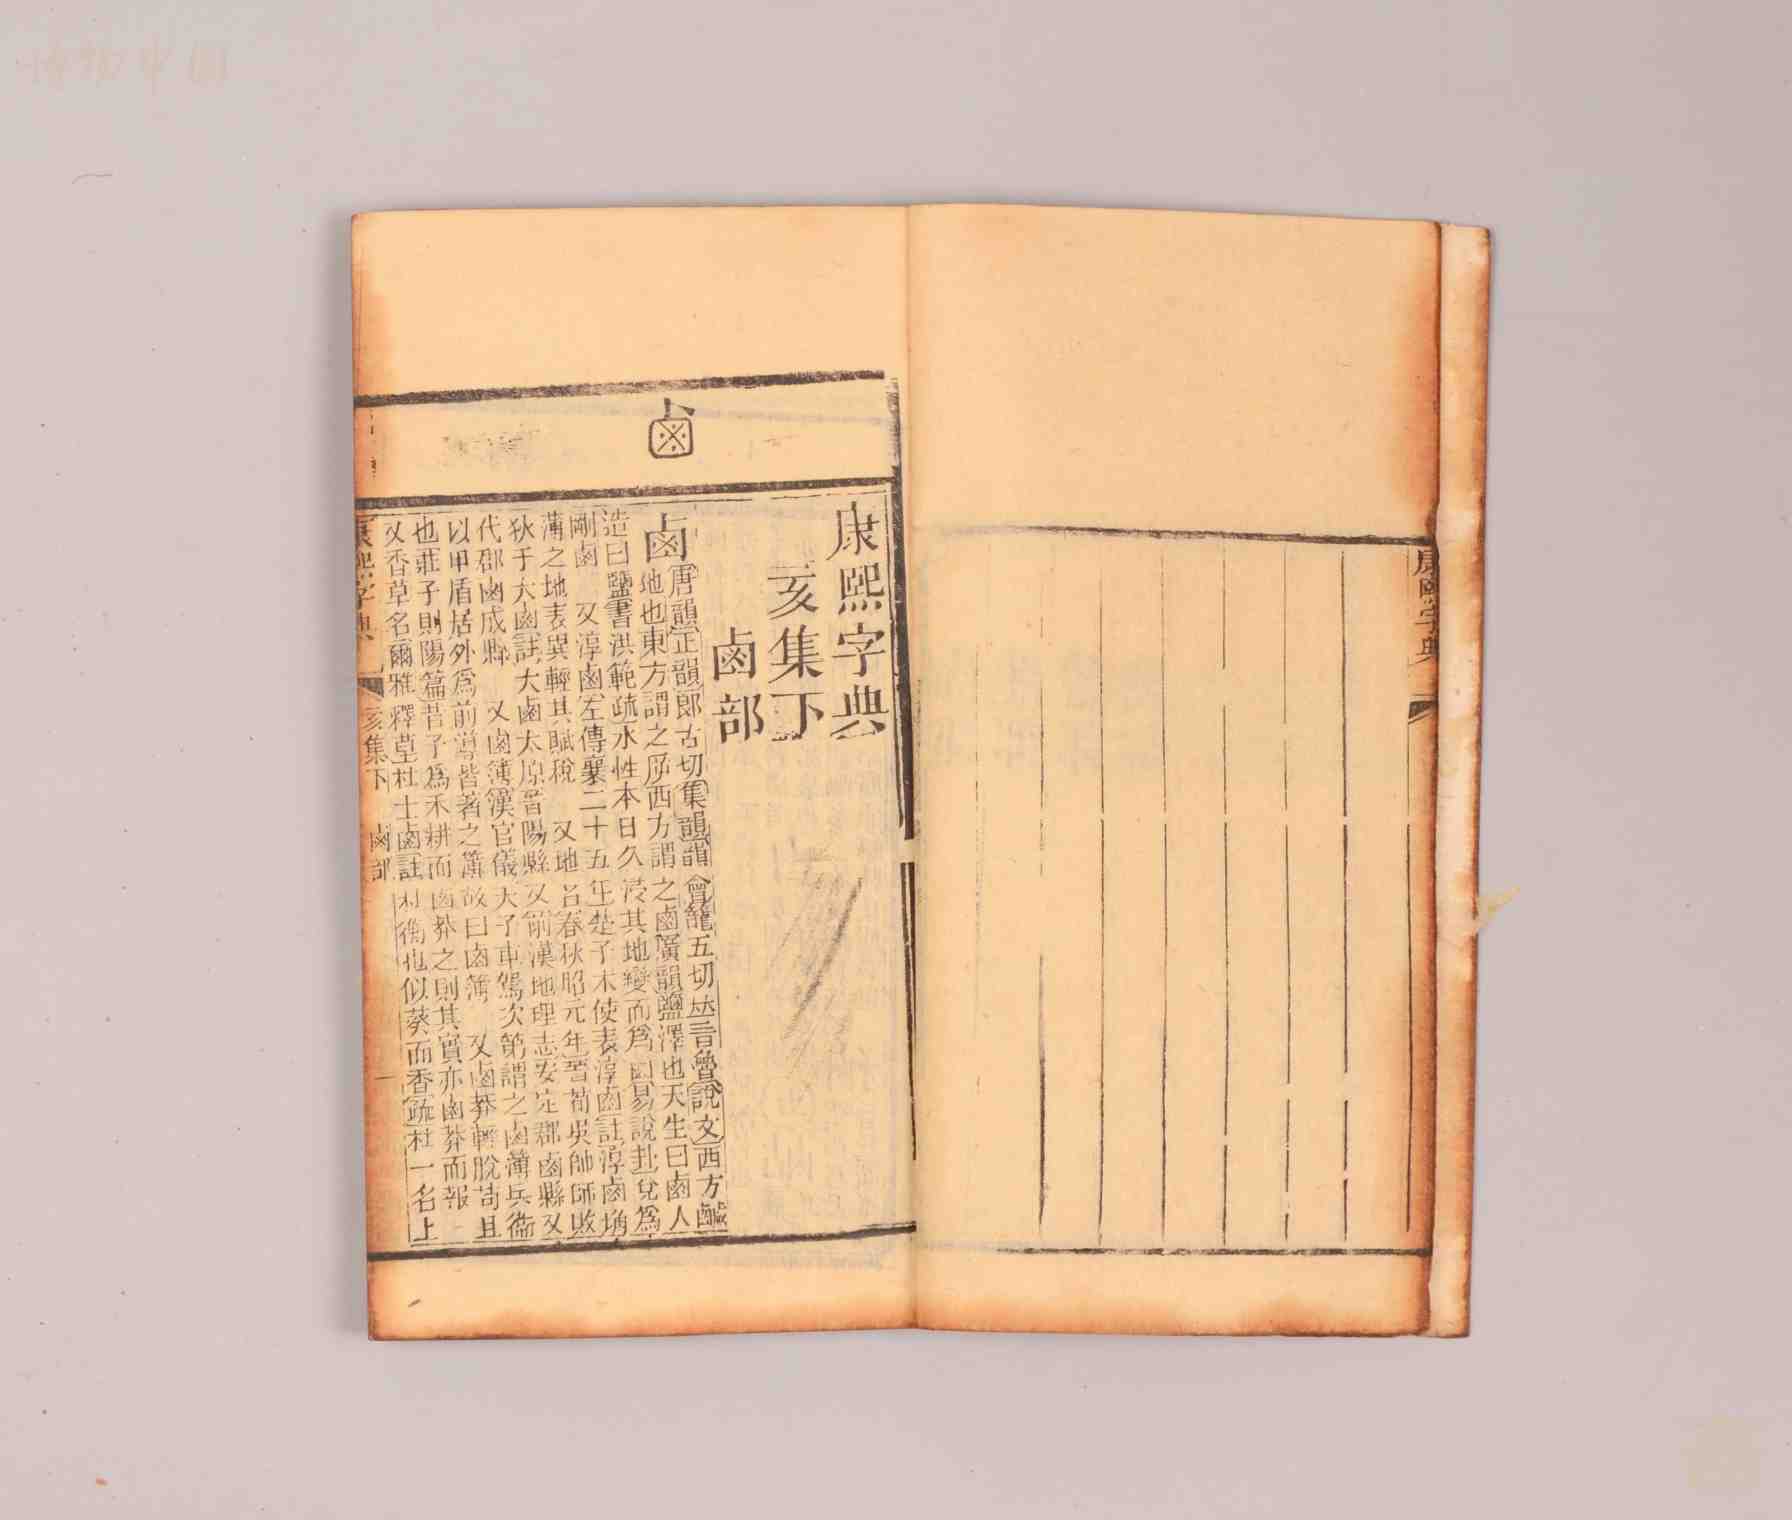 康熙字典
康熙字典
亥集下
鹵部
鹵唐韻正韻郎古切集韻韻會籠五切𠀤音魯說文西方鹹
地也東方謂之㡿西方謂之鹵廣韻鹽澤也天生曰鹵人
造曰鹽書洪範疏水性本日久浸其地變而爲鹵易說卦兌爲
剛鹵 又淳鹵左傳襄二十五年楚子木使表淳鹵註淳鹵埆
薄之地表異輕其賦稅 又地名春秋昭元年晉荀吳帥師敗
狄于大鹵註大鹵太原晉陽縣 又前漢地理志安定郡鹵縣又
代郡鹵成縣 又鹵簿漢官儀天子車駕次第謂之鹵簿兵衞
以甲盾居外爲前導皆著之簿故曰鹵簿 又鹵莽輕脫苟且
也莊子則陽篇昔予爲禾耕而鹵莽之則其實亦鹵莽而報
又香草名爾雅釋草杜士鹵註杜衡也似葵而香疏杜一名上
康熙字典 亥集下 鹵部 一